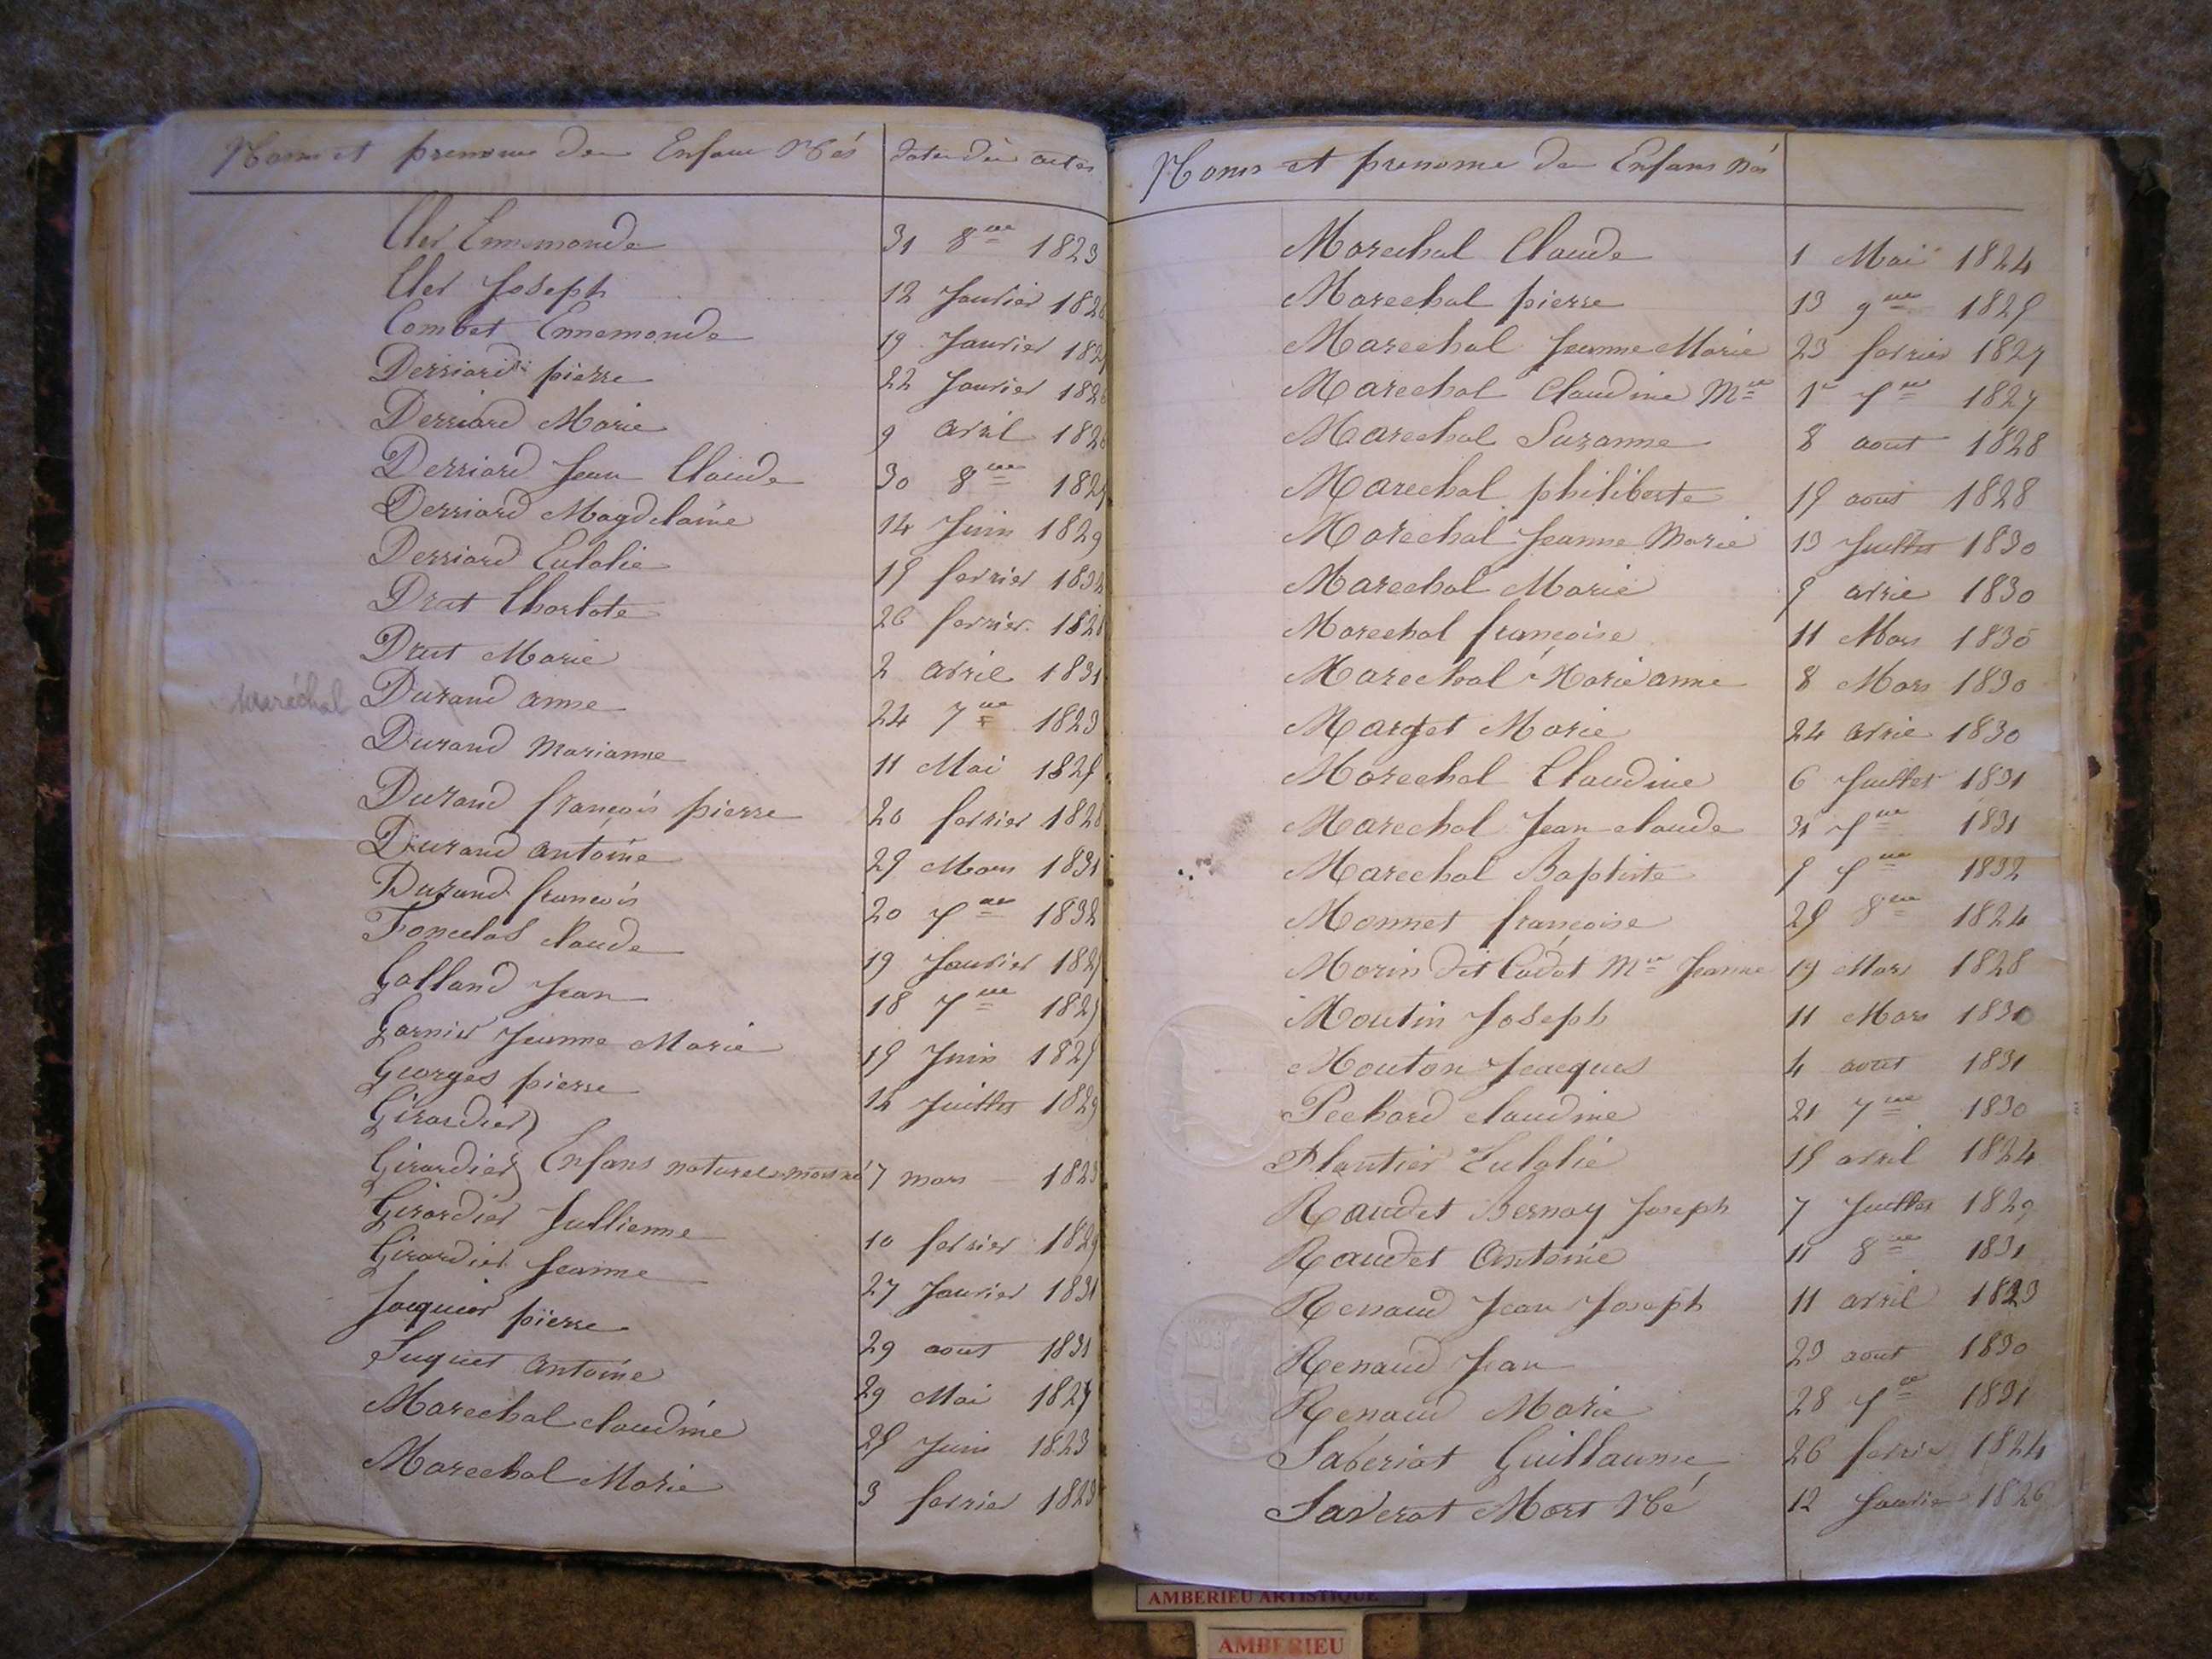 Noms et prenoms des Enfans Nés date des actes
Cler Ennemonde 31 8bre 1823
Cler Joseph 12 Janvier 1826
Combet Ennemonde 19 Janvier
Derriard pierre 22 Janvier 1826
Derriard Marie 9 avril 1826
Derriard Jean Claude 30 8bre
Derriard Magdelaine 14 Juin 1829
Derriard Eulalie 15 fevrier 1832
Drut Charlote 26 fevrier 1828
Drut Marie 2 avril 1831
maréchal
Durand anne 24 7bre 1823
Durand Marianne 11 Mai 1825
Durand françois pierre 20 fevrier 1828
Durand antoine 25 Mars 1831
Durand françois 20 7bre 1832
claude 19 Janvier
Galland Jean 18 7bre 1825
Garnier Jeanne Marie 15 Juin 1825
Georges pierre Juillet 1829
Girardier
Girardier Enfans naturels mors né 7 mars 1823
Girardier Jullienne 10 fevrier 1829
Girardier Jeanne 27 Janvier 1831
Jacquier pierre 29 aout 1831
Juquet antoine 29 Mai 1827
Marechal claudine 25 Juin 1823
Marechal Marie 3 fevrier 1823
Noms et prenoms de Enfans nés
Marechal Claude 1 Mai 1824
Marechal pierre 13 9bre 1825
Marechal Jeanne Marie 23 fevrier 1827
Marechal Claudine Mie 1er 1827
Marechal Suzanne 8 aout 1828
Marechal philiberte 15 aout 1828
Marechal Jeanne Marie 13 Juillet 1830
Marechal Marie 5 avril 1830
Marechal françoise 11 Mars 1830
Marechal Marie anne 8 Mars 1830
Marget Marie 24 avril 1830
Marechal Claudine 6 Juillet 1831
Marechal Jean claude 1831
Marechal Baptiste 1832
Monnet françoise 25 8bre 1824
Morin dit Cadet Mie Jeanne 19 Mars 1828
Moutin Joseph 11 Mars 1830
Mouton Jacques 4 aout 1831
Pechard claudine 21 7bre 1830
Plantier Eulalie 15 avril 1824
Raudet Bernay Joseph 7 Juillet 1829
Raudet Antoine 11 8bre 1831
Renaud Jean Joseph 11 avril 1823
Renaud Jean 23 aout 1830
Renaud Marie 28 1831
Saveriat Guillaume 26 fevrier 1824
Saverat Mort Né 12 Janvier 1826
AMBERIEU ARTISTIQUE
AMBERIEU